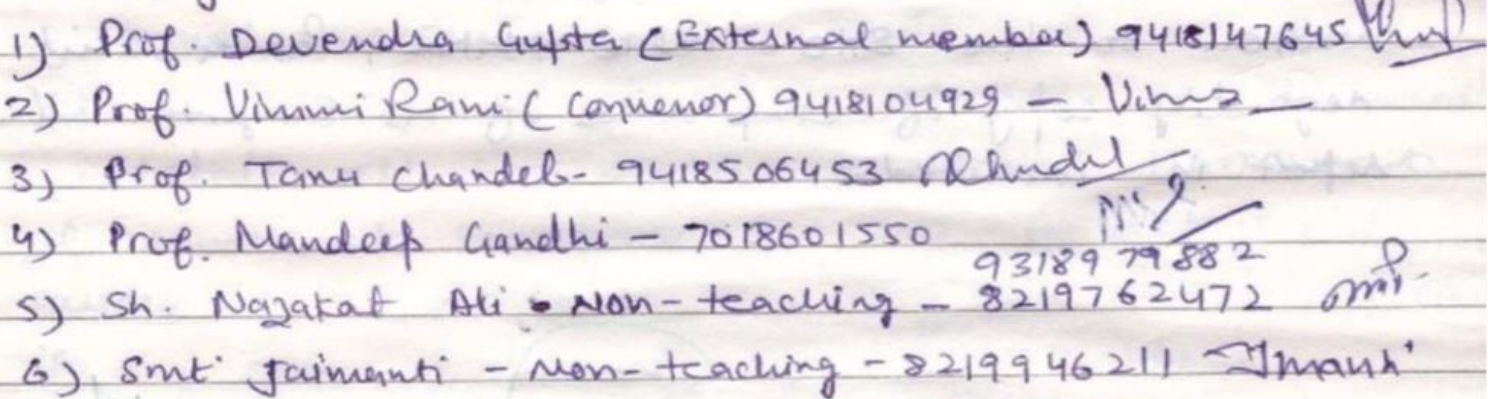 1) Prof. Devendra Gupta (External member) 9418147645
2) Prof. Vimmi Rani (Convenor) 9418104929 -
3) Prof. Tanu Chandel - 9418506453
4) Prof. Mandeep Gandhi - 7018601550
9318979882
5) Sh. Najakat Ali - Non-teaching - 8219762472
6) Smt Jaimanti - Non-teaching - 8219946211